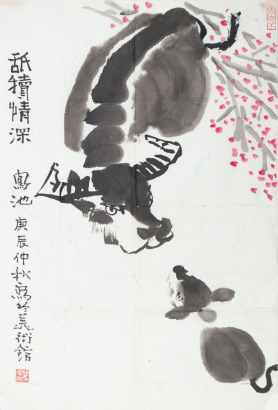 舐犢情深
寫池 庚辰仲秋寫於美術館